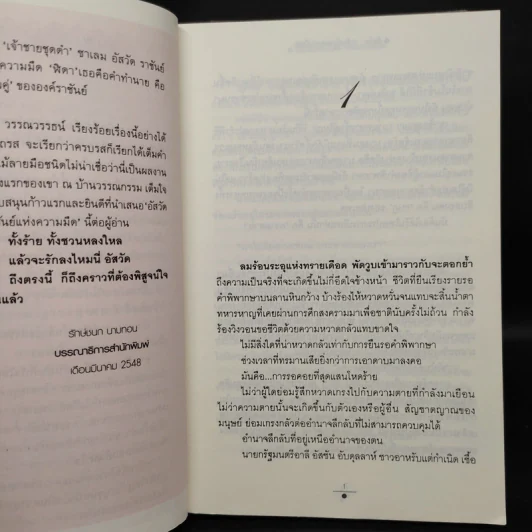 'เจ้าชายชุดดำ' ซาเลม อัสวัด ราชันย์
ความมืด 'ฟิดา'เธอคือคำทำนาย คือ
คู่' ขององค์ราชันย์
วรรณวรรธน์ เรียงร้อยเรื่องนี้อย่างได้
ถรส จะเรียกว่าครบรสก็เรียกได้เต็มคำ
ลายมือชนิดไม่น่าเชื่อว่านี่เป็นผลงาน
งแรกของเขา ณ บ้านวรรณกรรม เต็มใจ
บสนุนก้าวแรกและยินดีที่นำเสนอ'อัสวัด
ันย์แห่งความมืด' นี้ต่อผู้อ่าน
ทั้งร้าย ทั้งชวนหลงใหล
แล้วจะรักลงไหมนี่ อัสวัด
ถึงตรงนี้ ก็ถึงคราวที่ต้องพิสูจน์ใจ
แล้ว
รักษ์ชนก นามทอน
บรรณาธิการสำนักพิมพ์
เดือนมีนาคม 2548
1
ลมร้อนระอุแห่งทรายเดือด พัดวูบเข้ามาราวกับจะตอกย้ำ
ถึงความเป็นจริงที่จะเกิดขึ้นไม่กี่อึดใจข้างหน้า ชีวิตที่ยืนเรียงรายรอ
คำพิพากษาบนลานหินกว้าง บ้างร้องไห้หวาดหวั่นจนแทบจะสิ้นน้ำตา
ทหารหาญที่เคยผ่านการศึกสงครามมาเพื่อชาตินับครั้งไม่ถ้วน กำลัง
ร้องวิงวอนขอชีวิตด้วยความหวาดกลัวแทบขาดใจ
ไม่มีสิ่งใดที่น่าหวาดกลัวเท่ากับการยืนรอคำพิพากษา
ช่วงเวลาที่ทรมานเสียยิ่งกว่าการเอาดาบมาลงคอ
มันคือ...การรอคอยที่สุดแสนโหดร้าย
ไม่ว่าผู้ใดย่อมรู้สึกหวาดเกรงไปกับความตายที่กำลังมาเยือน
ไม่ว่าความตายนั้นจะเกิดขึ้นกับตัวเองหรือผู้อื่น สัญชาตญาณของ
มนุษย์ ย่อมเกรงกลัวต่ออำนาจลึกลับที่ไม่สามารถควบคุมได้
อำนาจลึกลับที่อยู่เหนืออำนาจของตน
นายกรัฐมนตรีอาลี อัสซัน อับดุลลาห์ ชาวอาหรับแต่กำเนิด เชื้อ
1